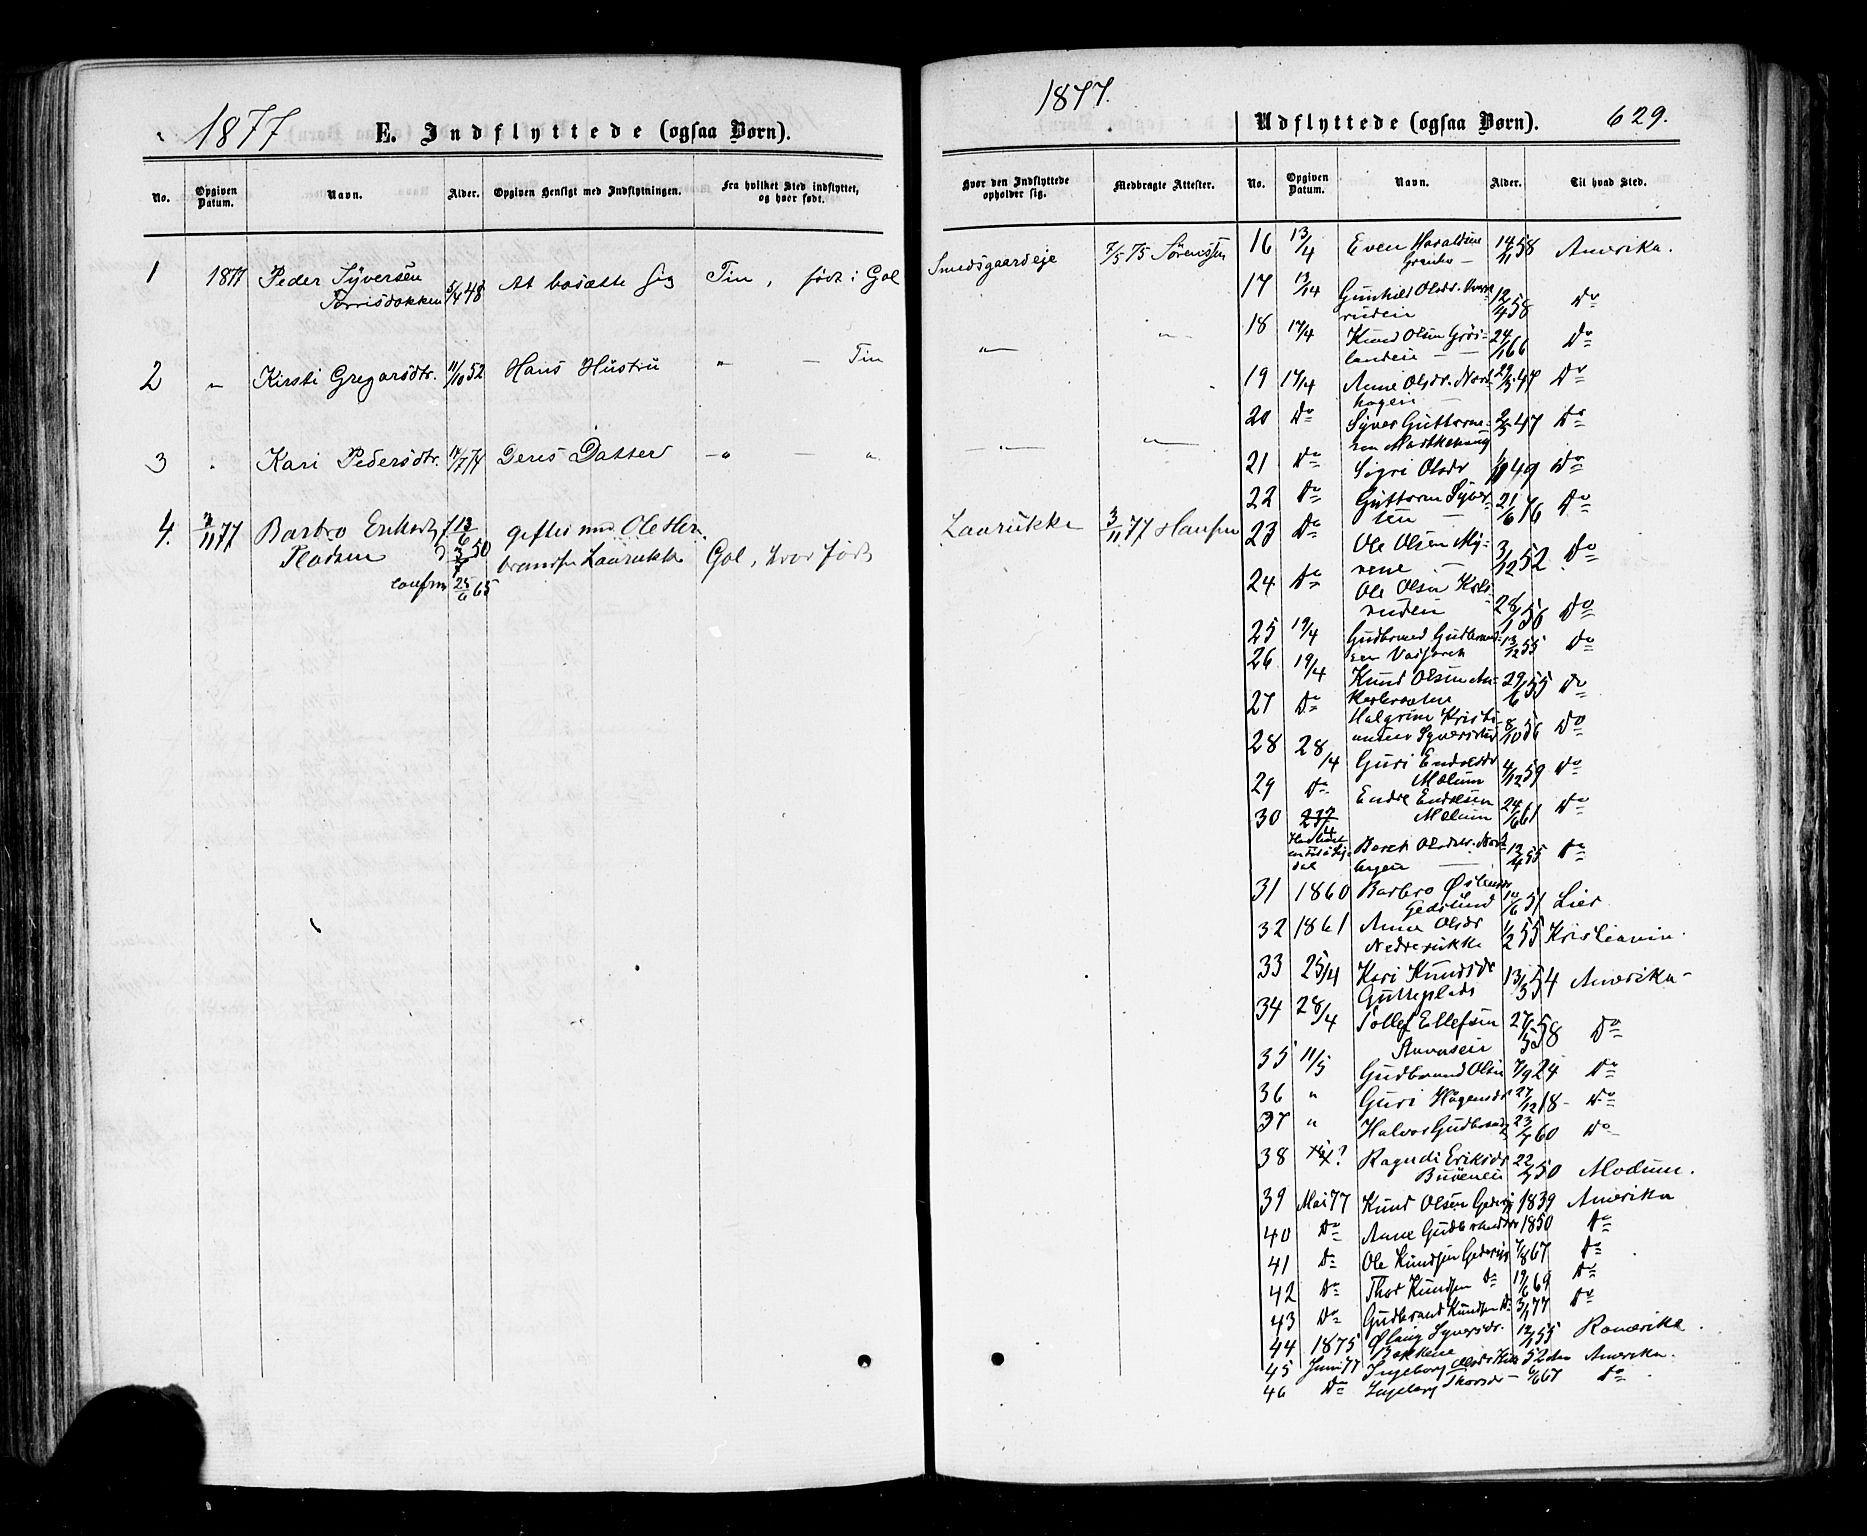 1877
E. Indflyttede (ogsaa Børn).
No. Opgiven Datum. Navn. Alder. Opgiven Hensigt med Indflytningen. Fra hvilket Sted indflyttet, og hvor født.
1 1877 Peder Syversen 5/4 48 At bosætte sig Tin, født i Gol
2 " Kirsti Gregarsdtr. 11/10 52 Hans Hustru " — Tin
3 " Kari Pedersdtr. 14/7 74 Deres Datter — " — "
4. 3/11 77 Barbro Eriksdtr f. 13/6
Pladsen d. 50 Gol, hvor født
confrm 25/6 65
1877.
Udflyttede (ogsaa Børn). 629.
Hvor den Indflyttede opholder sig. Medbragte Attester. No. Opgiven Datum. Navn. Alder. Til hvad Sted.
Smedsgaardeje 7/5 75 Sørenssen
" "
" "
Laarukke 3/11 77 Hansen
16 13/4 Even Haraldsen 14/11 58 Amerika.
17 13/4 Gunhild Olsdr. 12/4 58 Do
18 17/4 Knud Olsen 24/1 66 Do
19 17/4 Anne Olsdr. Nord- 29/3 47 Do
hagen —
20 Do Syver Guttorm- 47 Do
sen
21 Do Sigri Olsdr 49 Do
22 Do Guttorm Syver- 21/6 76 Do
sen —
23 Do Ole Olsen My- 3/12 52 Do
rene —
24 Do Ole Olsen 28/1 56 Do
25 19/4 Gudbrand Gudbrand- 13/12 55 Do
sen
26 19/4 Knud Olsen 29/6 55 Do
27 Do Halgrim Kristi- 8/10 56 Do
ansen
28 28/4 Guri Endresdr 4/12 59 Do
Molum
29 Do Endre Endresen 24/6 61 Do
Molum
30 Beret Olsdtr. Nord- 12/4 55 Do
hagen —
31 1860 Barbro Østensdr 10/6 51 Lier
Gedslund
32 1861 Anne Olsdr 1/2 55 Kristiania.
Nedrerukke
33 25/4 Kari Knudsdr 13/3 54 Amerika -
Gutteplads
34 28/4 Tollef Ellefsen 27/5 58 Do
35 11/5 Gudbrand Olsen 7/9 24 Do
36 " Guri Hagensdr 27/12 18 - Do
37 " Halvor Gudbrands 23/7 60 Do
38 ? Ragndi Eriksdr 22/ 50 Modum.
39 Mai 77 Knud Olsen 1839 Amerika
40 Do Anne Gudbrandsdr 1850 Do
41 Do Ole Knudsen 7/8 67 Do
42 Do Thor Knudsen Do 19/6 69 Do
43 Do Gudbrand Knudsen Do 3/1 77 Do
44 1875 Syversdr. 12/1 55 Romerike.
Bakkene
45 Juni 77 Ingeborg Olsdr 52 Amerika.
46 Do Ingeborg Thorsdr — 6/6 67 Do